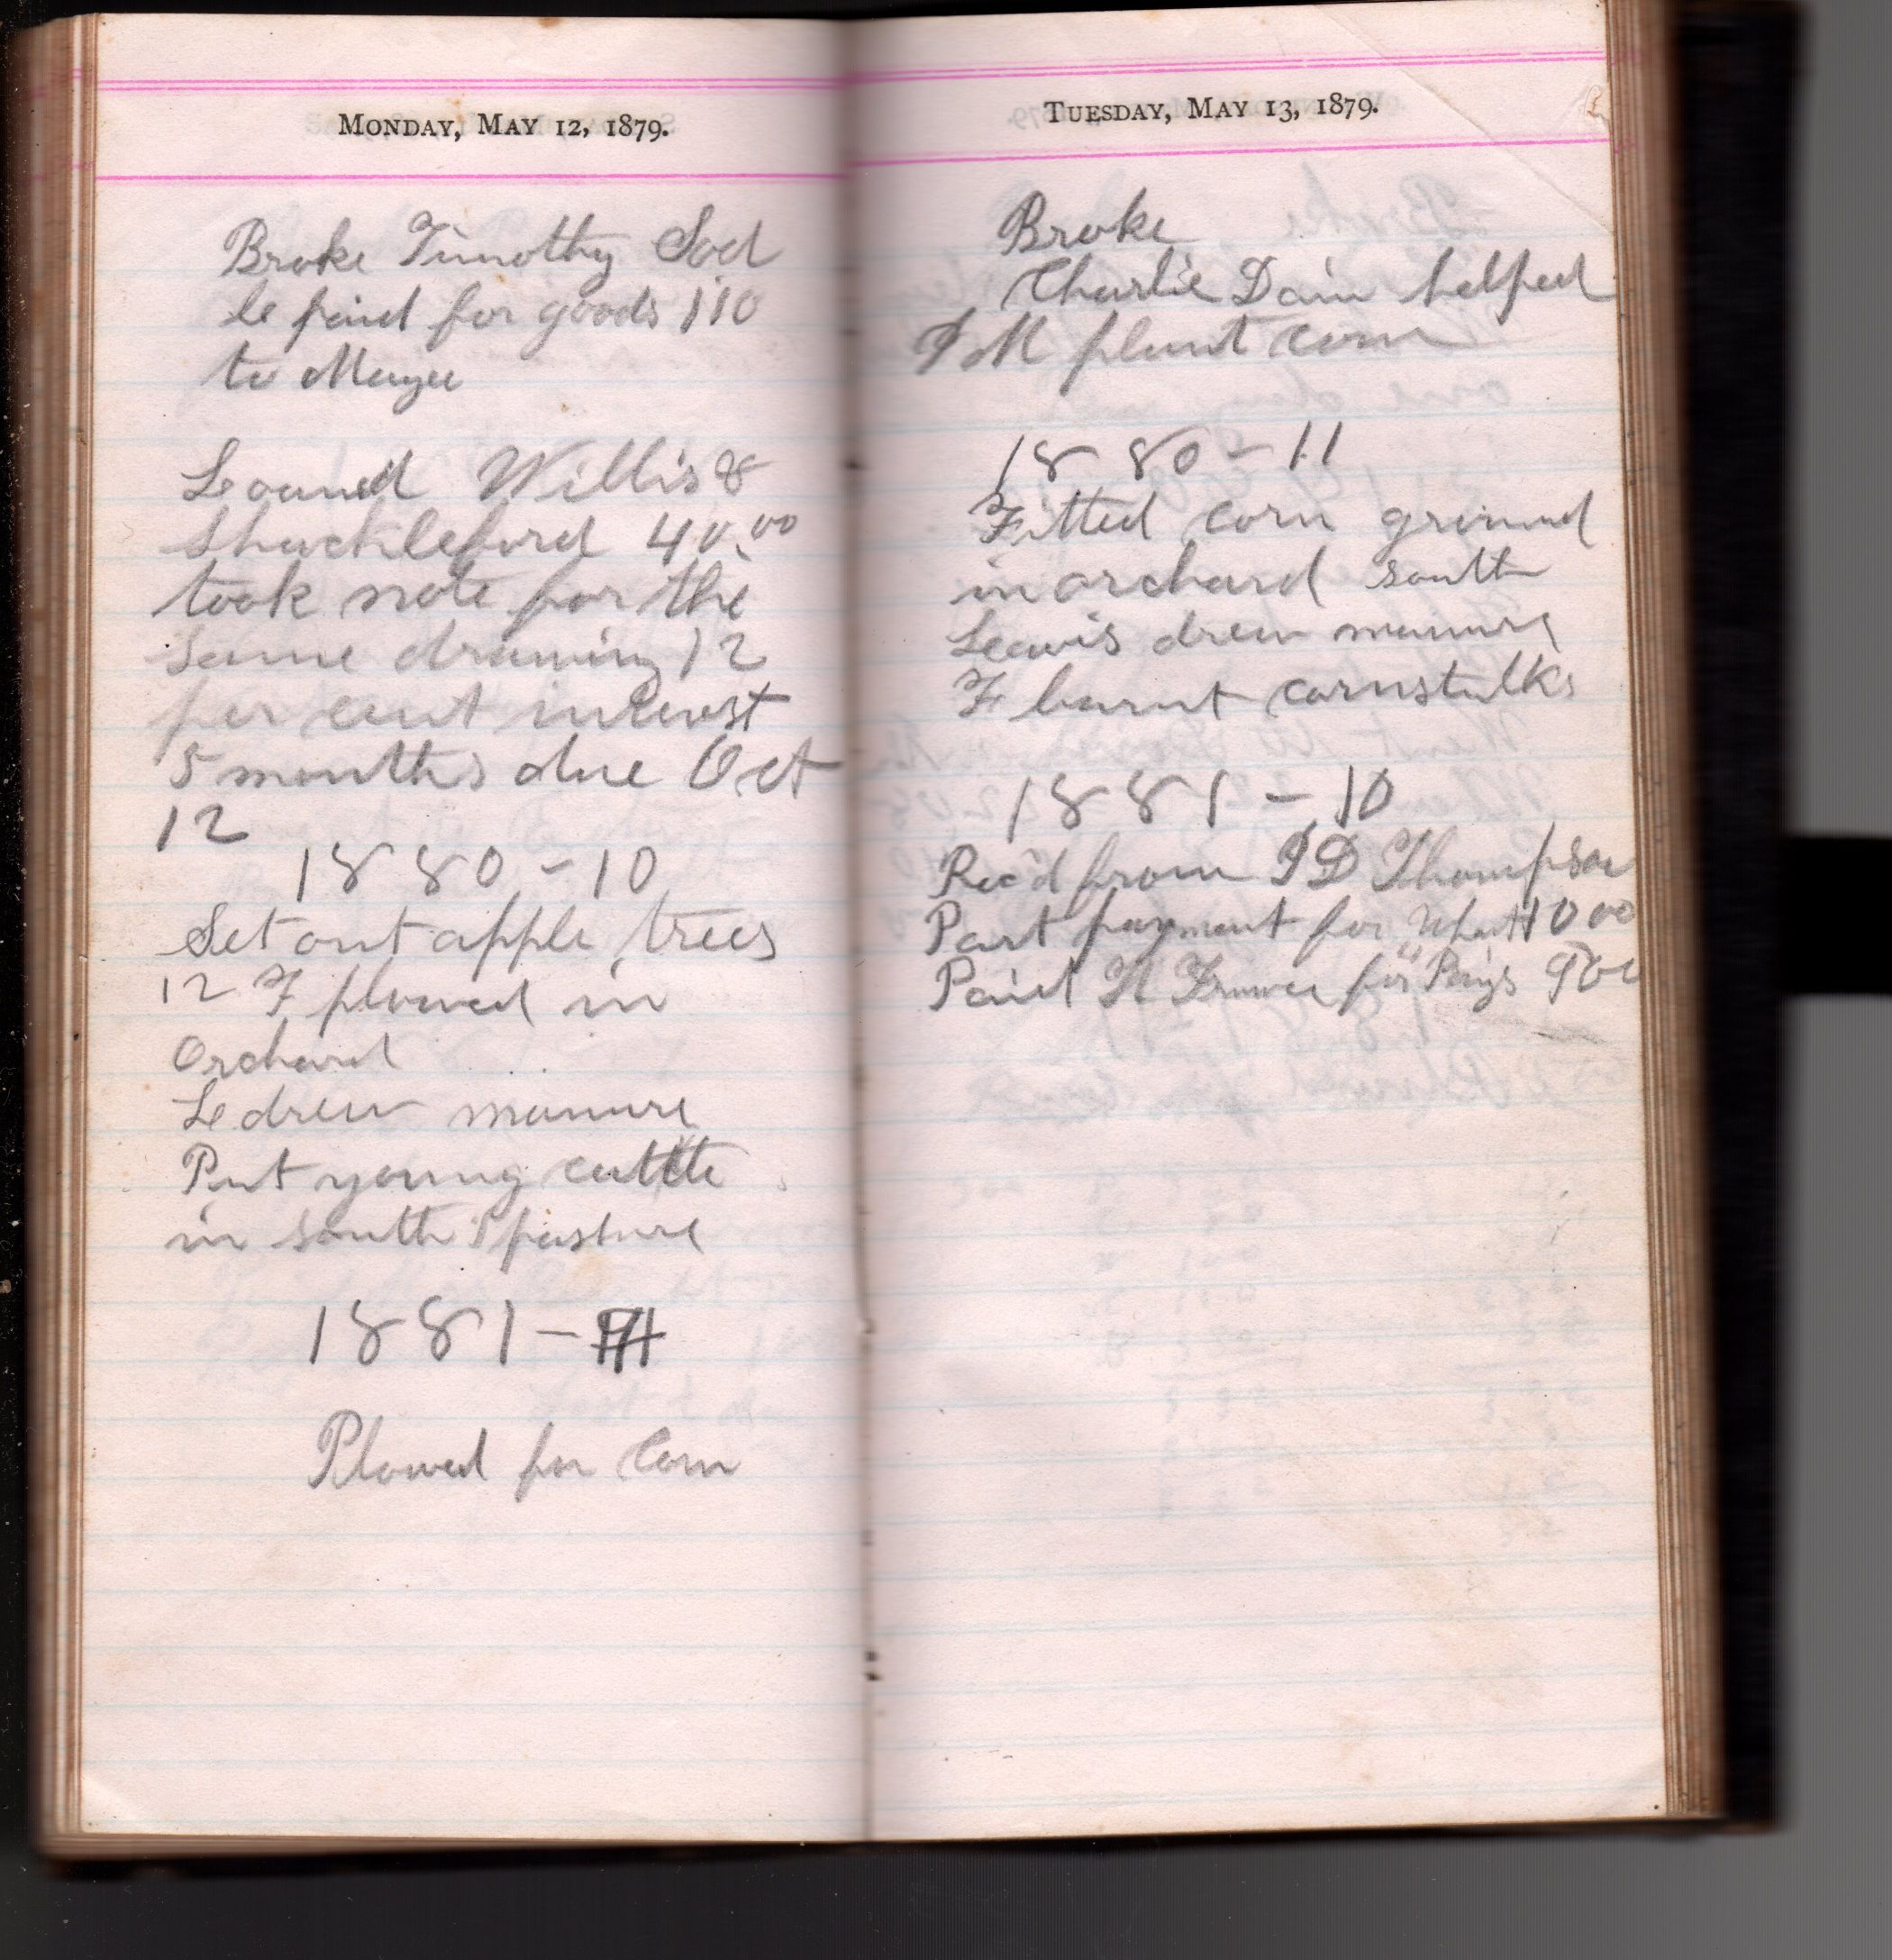 MONDAY, MAY 12, 1879.
Broke Timothy Sod
Le paid for goods 110
to Mayee
Loaned Willis &
Shackleford 40.00
took note for the
same drawing 12
per cent interest
5 months due Oct
12
1880 - 10
Set out apple trees
12 F plowed in
Orchard
Le drew manure
Put young cattle
in south pasture
1881 -
Plowed for Corn
TUESDAY, MAY 13, 1879.
Broke
Charlie Dain helped
I M plant corn
1880 - 11
Fitted corn ground
in orchard south
Lewis drew manure
F burnt cornstalks
1881 - 10
Rec'd from I D Thompson
Part payment for 10 00
Paid H for Pigs 9 00